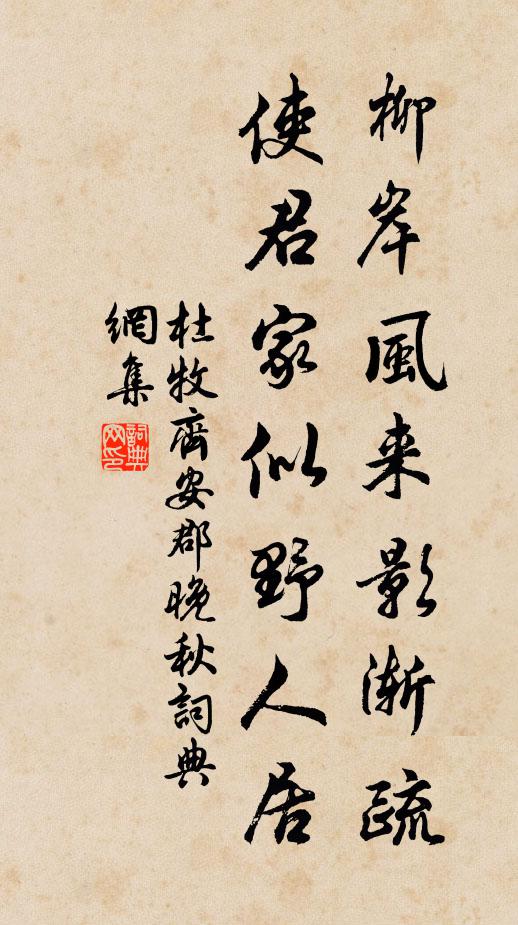 柳岸風来影漸疏
使君家似野人居
杜牧齊安郡晚秋詞典
網集
詞典網印